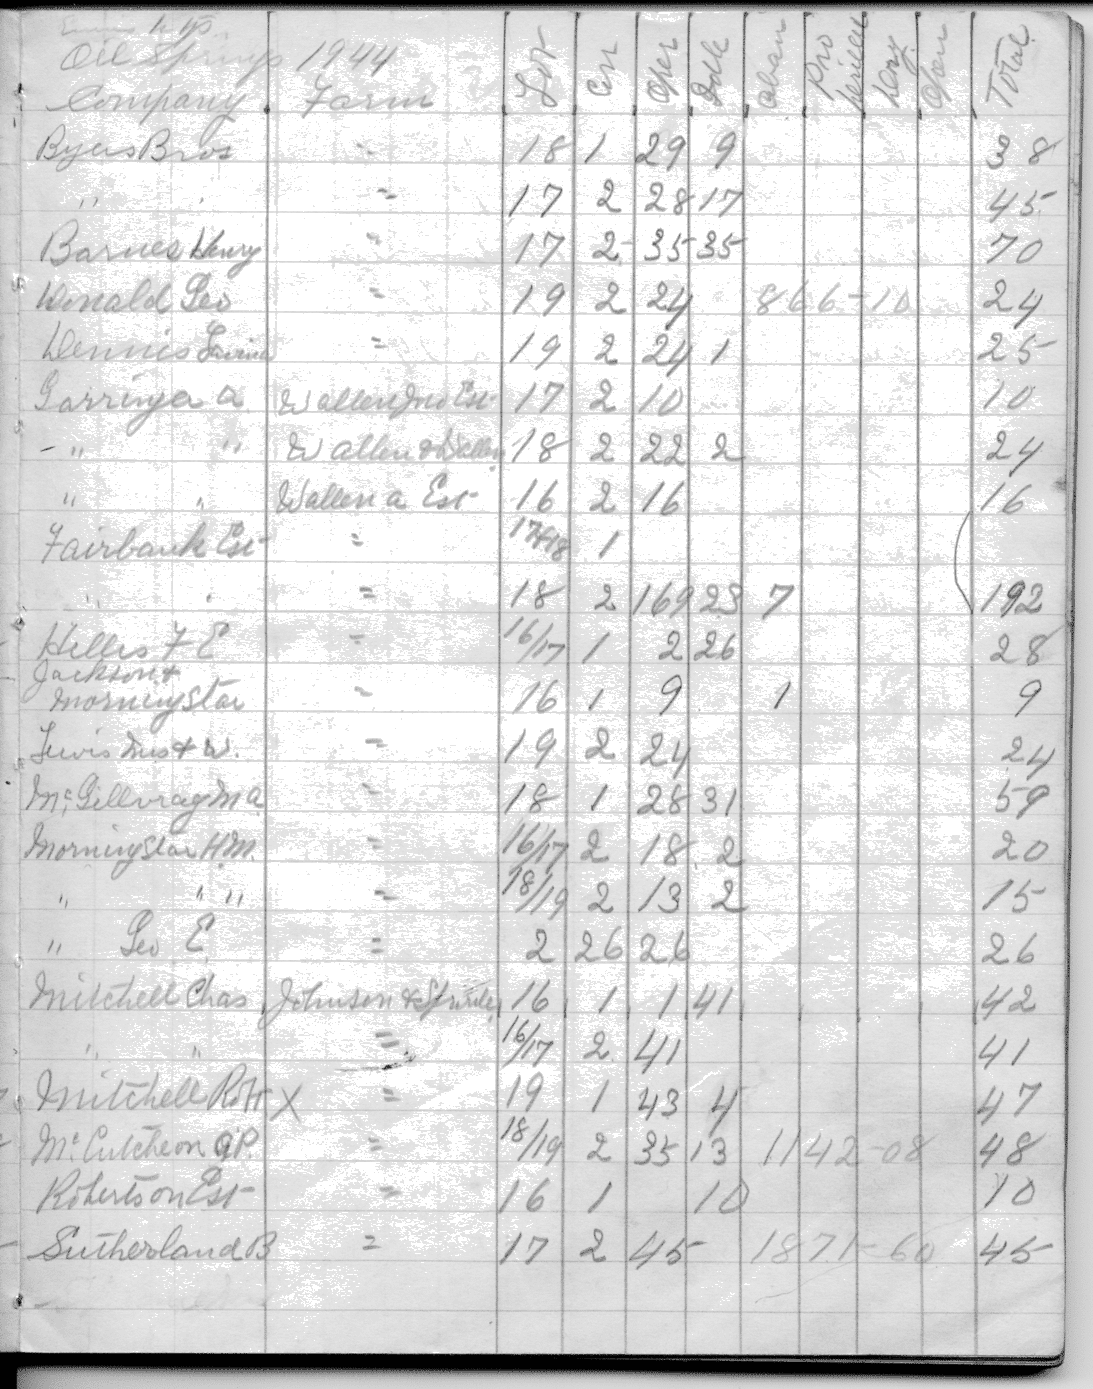 Oil Springs 1944
Company Farm Lot Con Oper Idle Aban Pro Drilled Dry Oper Total
Byers Bros " 18 1 29 9 38
" " " 17 2 28 17 45
Barnes Henry " 17 2 35 35 70
Donald Geo " 19 2 24 866-10 24
Dennis " 19 2 24 1 25
Garringa A Wallen Jno Est 17 2 10 10
" " Wallen & Wallen 18 2 22 2 24
" " Wallen A Est 16 2 16 16
Fairbank Est " 17+18 1
" " " 18 2 169 23 7 192
Hillis F E " 16/17 1 2 26 28
Jackson &
Morningstar " 16 1 9 1 9
Lewis & W. " 19 2 24 24
McGillvray M A " 18 1 28 31 59
Morningstar H.M. " 16/17 2 18 2 20
" " " " 18/19 2 13 2 15
" Geo E " 2 26 26 26
Mitchell Chas Johnson & 16 1 1 41 42
" " " 16/17 2 41 41
Mitchell Robt X " 19 1 43 4 47
McCutcheon P. " 18/19 2 35 13 1142-08 48
Robertson Est " 16 1 10 10
Sutherland B " 17 2 45 1871-60 45